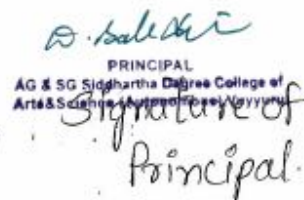 PRINCIPAL
AG & SG Siddhartha Degree College of
Arts & Science (Autonomous) Vayyuru
Signature of
Principal.